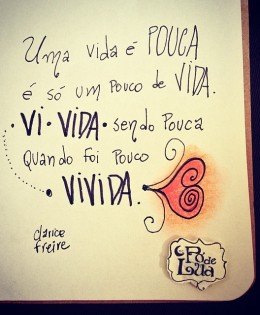 Uma vida é POUCA
é só um pouco de VIDA.
• VI • VIDA • sendo Pouca
Quando foi Pouco
• VIVIDA.
clarice
freire
Pó de
Lua